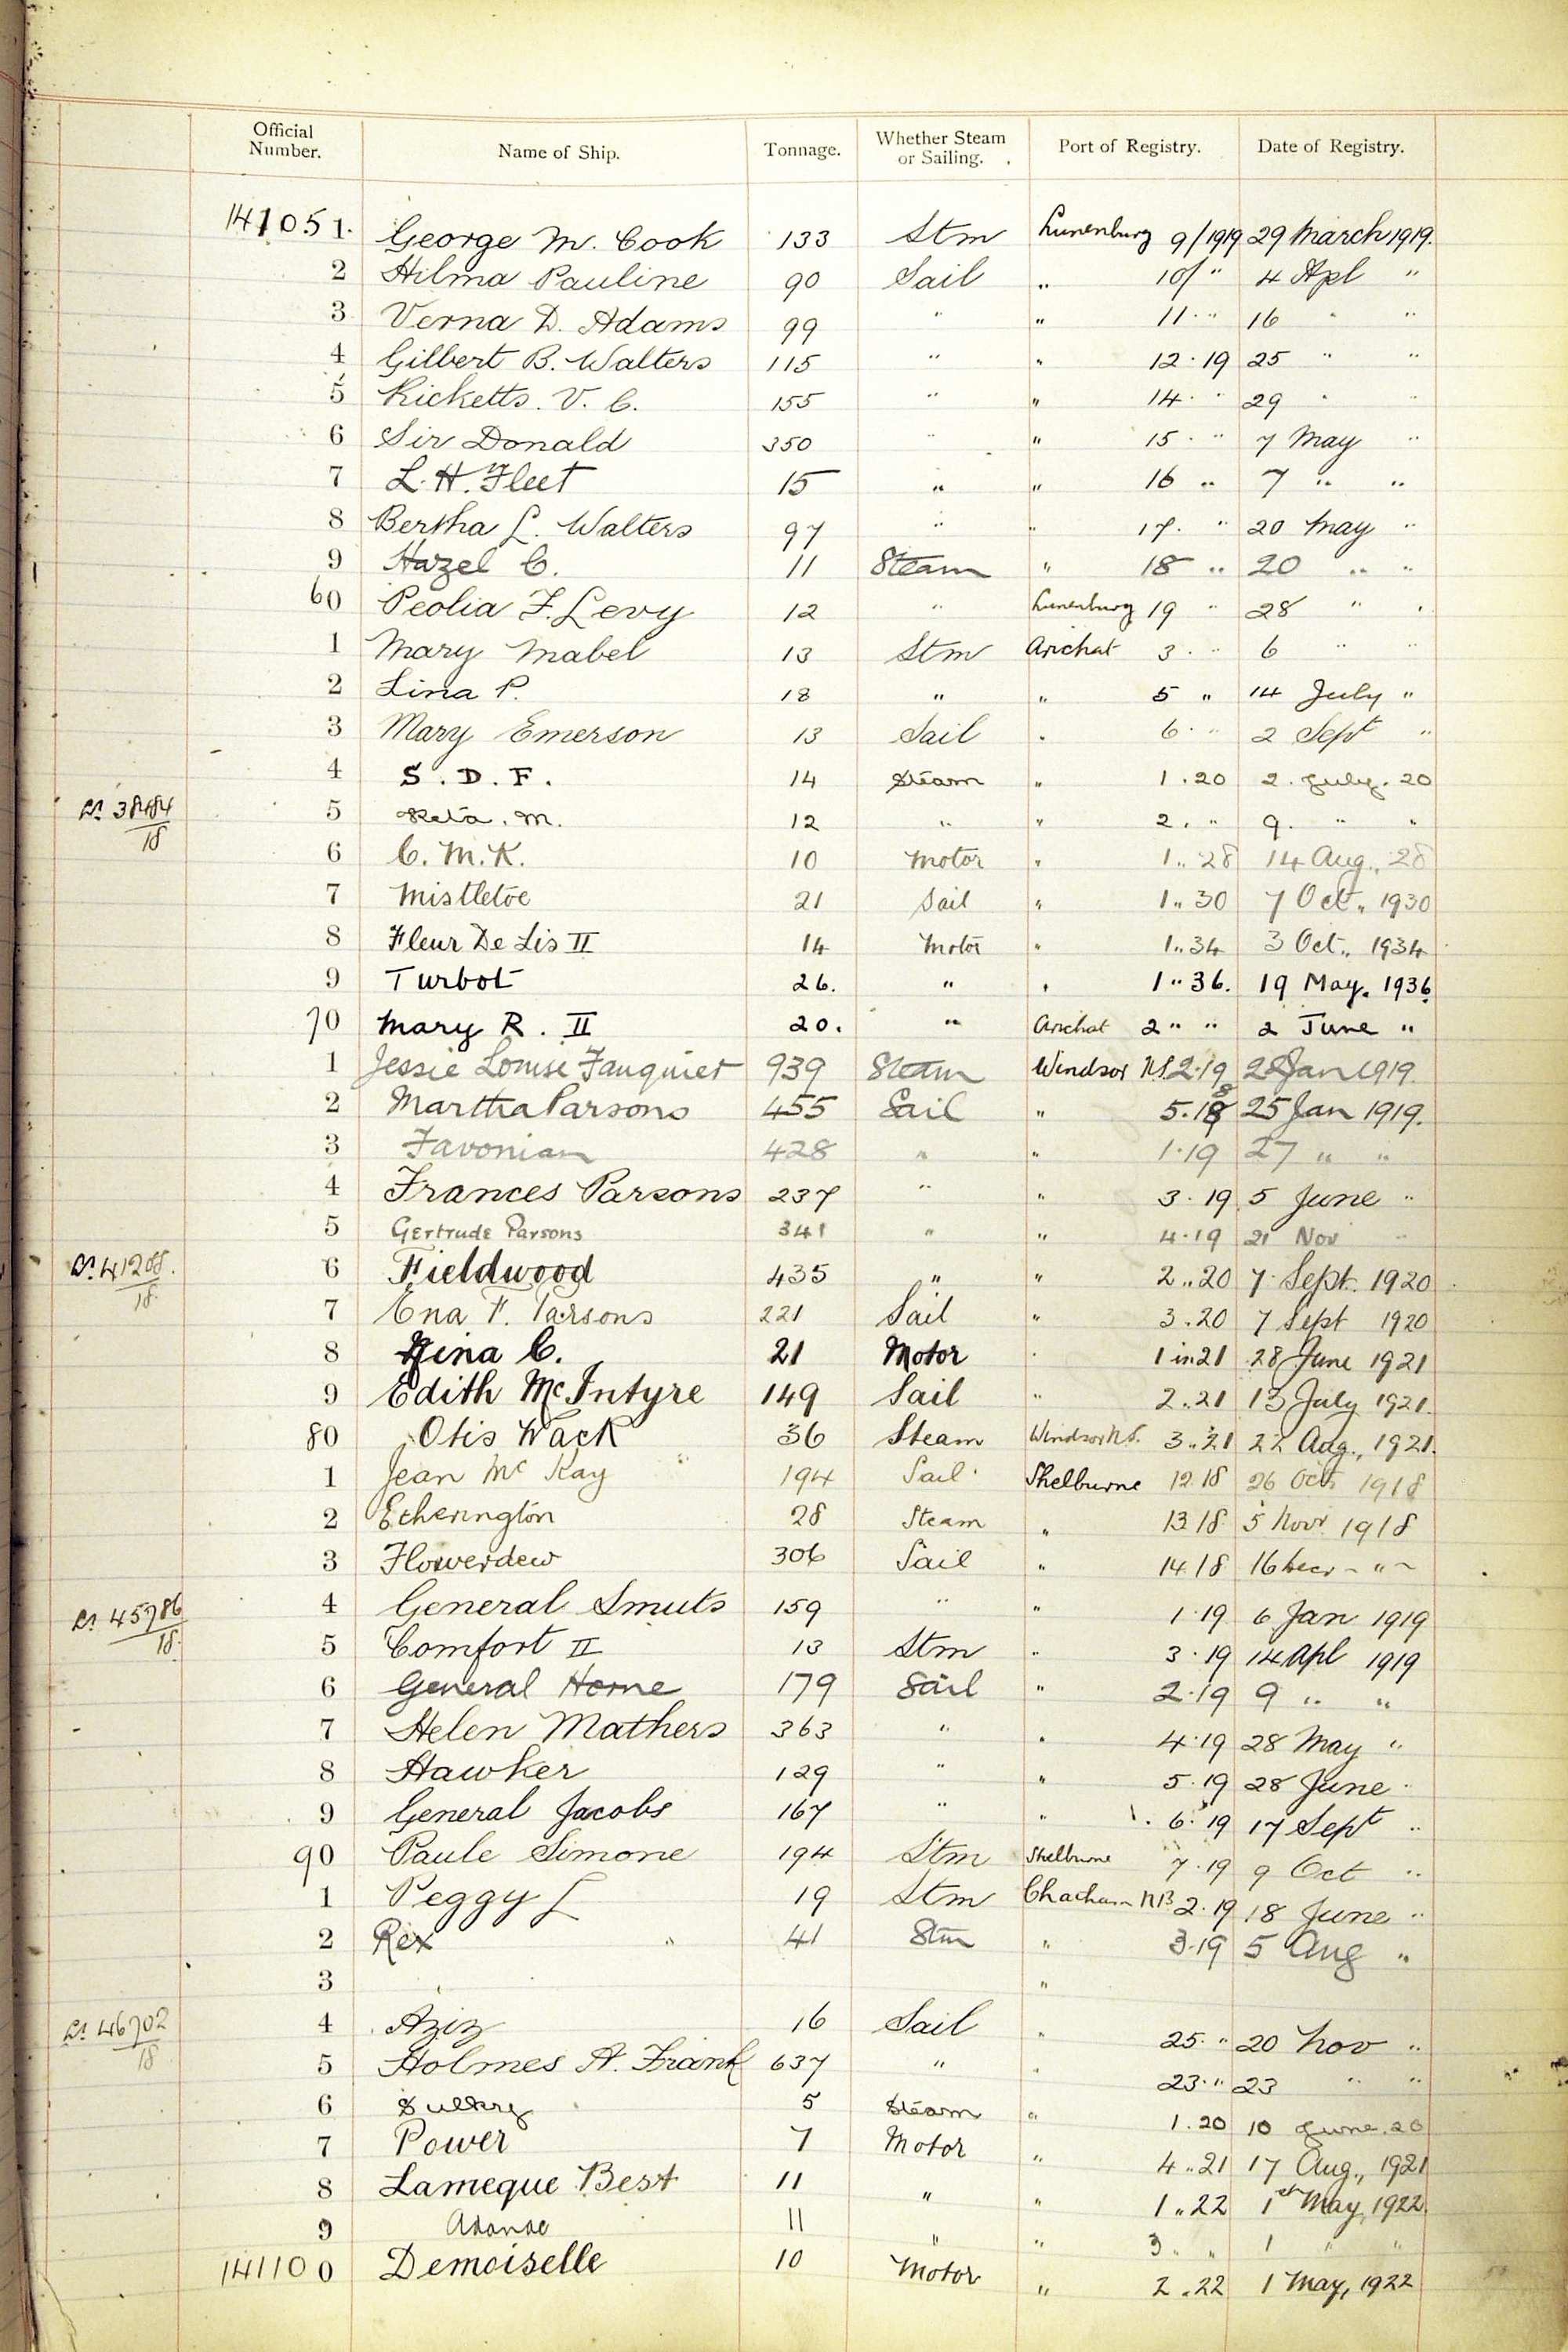 Official Number. Name of Ship. Tonnage. Whether Steam or Sailing. Port of Registry. Date of Registry.
141051. George M. Cook 133 Stm Lunenburg 9/1919 29 March 1919.
2 Hilma Pauline 90 Sail " 10/ " 4 Apl "
3 Verna D. Adams 99 " " 11 . " 16 " "
4 Gilbert B. Walters 115 " " 12 . 19 25 " "
5 Ricketts. V. C. 155 " " 14 . " 29 " "
6 Sir Donald 350 " " 15 . " 7 May "
7 L. H. Fleet 15 " " 16 " 7 " "
8 Bertha L. Walters 97 " " 17. " 20 May "
9 Hazel C. 11 Steam " 18 " 20 " "
60 Peolia F. Levy 12 " Lunenburg 19 " 28 " "
1 Mary Mabel 13 Stm Arichat 3 . " 6 " "
2 Lina P. 18 " " 5 " 14 July "
3 Mary Emerson 13 Sail " 6 . " 2 Sept "
4 S. D. F. 14 Steam " 1 . 20 2. July. 20
5 Reta. M. 12 " " 2. " 9. " "
6 C. M. K. 10 Motor " 1.. 28 14 Aug., 28
7 Mistletoe 21 Sail " 1.. 30 7 Oct., 1930
8 Fleur De Lis II 14 Motor " 1.. 34 3 Oct., 1934
9 Turbot 26. " " 1 " 36. 19 May. 1936
70 Mary R. II 20. " Arichat 2 " " 2 June "
1 Jessie Louise Fauquier 939 Steam Windsor N.S. 2.19 28 Jan 1919.
2 Martha Parsons 455 Sail " 5.18 25 Jan 1919.
3 Favonian 428 " " 1.19 27 " "
4 Frances Parsons 237 " " 3. 19 5 June "
5 Gertrude Parsons 341 " " 4.19 21 Nov "
6 Fieldwood 435 " " 2..20 7. Sept. 1920
7 Ena F. Parsons 221 Sail " 3.20 7 Sept 1920
8 Nina C. 21 Motor " 1 in 21 28 June 1921
9 Edith McIntyre 149 Sail " 2..21 13 July 1921.
80 Otis Wack 36 Steam Windsor N.S. 3..21 22 Aug., 1921.
1 Jean McKay 194 Sail Shelburne 12.18 26 Oct. 1918
2 Etherington 28 Steam " 13 18 5 Novr 1918
3 Flowerdew 306 Sail " 14 18 16 Decr "
Rl. 38484/18
4 General Smuts 159 " " 1.19 6 Jan 1919
Rl. 41208./18.
5 Comfort II 13 Stm " 3. 19 14 Apl 1919
Rl. 45786/18.
6 General Horne 179 Sail " 2.19 9 " "
7 Helen Mathers 363 " " 4.19 28 May "
8 Hawker 129 " " 5.19 28 June "
9 General Jacobs 167 " " 6.19 17 Sept "
90 Paule Simone 194 Stm Shelburne 7.19 9 Oct "
1 Peggy L 19 Stm Chatham N.B 2.19 18 June "
2 Rex 41 Stm " 3.19 5 Aug "
3 "
Rl. 46702/18
4 Aziz 16 Sail " 25. " 20 Nov "
5 Holmes A. Frank 637 " " 23. " 23 " "
6 Sulkry 5 Steam " 1.20 10 June. 20
7 Power 7 Motor " 4..21 17 Aug., 1921
8 Lameque Best 11 " " 1..22 1st May, 1922.
9 11 " " 3 " 1 " "
141100 Demoiselle 10 Motor " 2..22 1 May, 1922